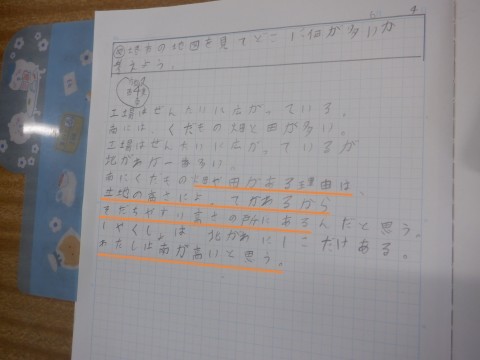 4
地図を見てどこに何が多いか
考えよう。
工場はぜんたいに広がっている。
南には、くだもの畑と田が多い。
工場はぜんたいに広がっているが
北がわが一番多い。
南にくだもの畑や田がある理由は、
土地の高さによってかわるから
そだちやすい高さの所にあるんだと思う。
しやくしょは北がわに1こだけある。
わたしは南が高いと思う。